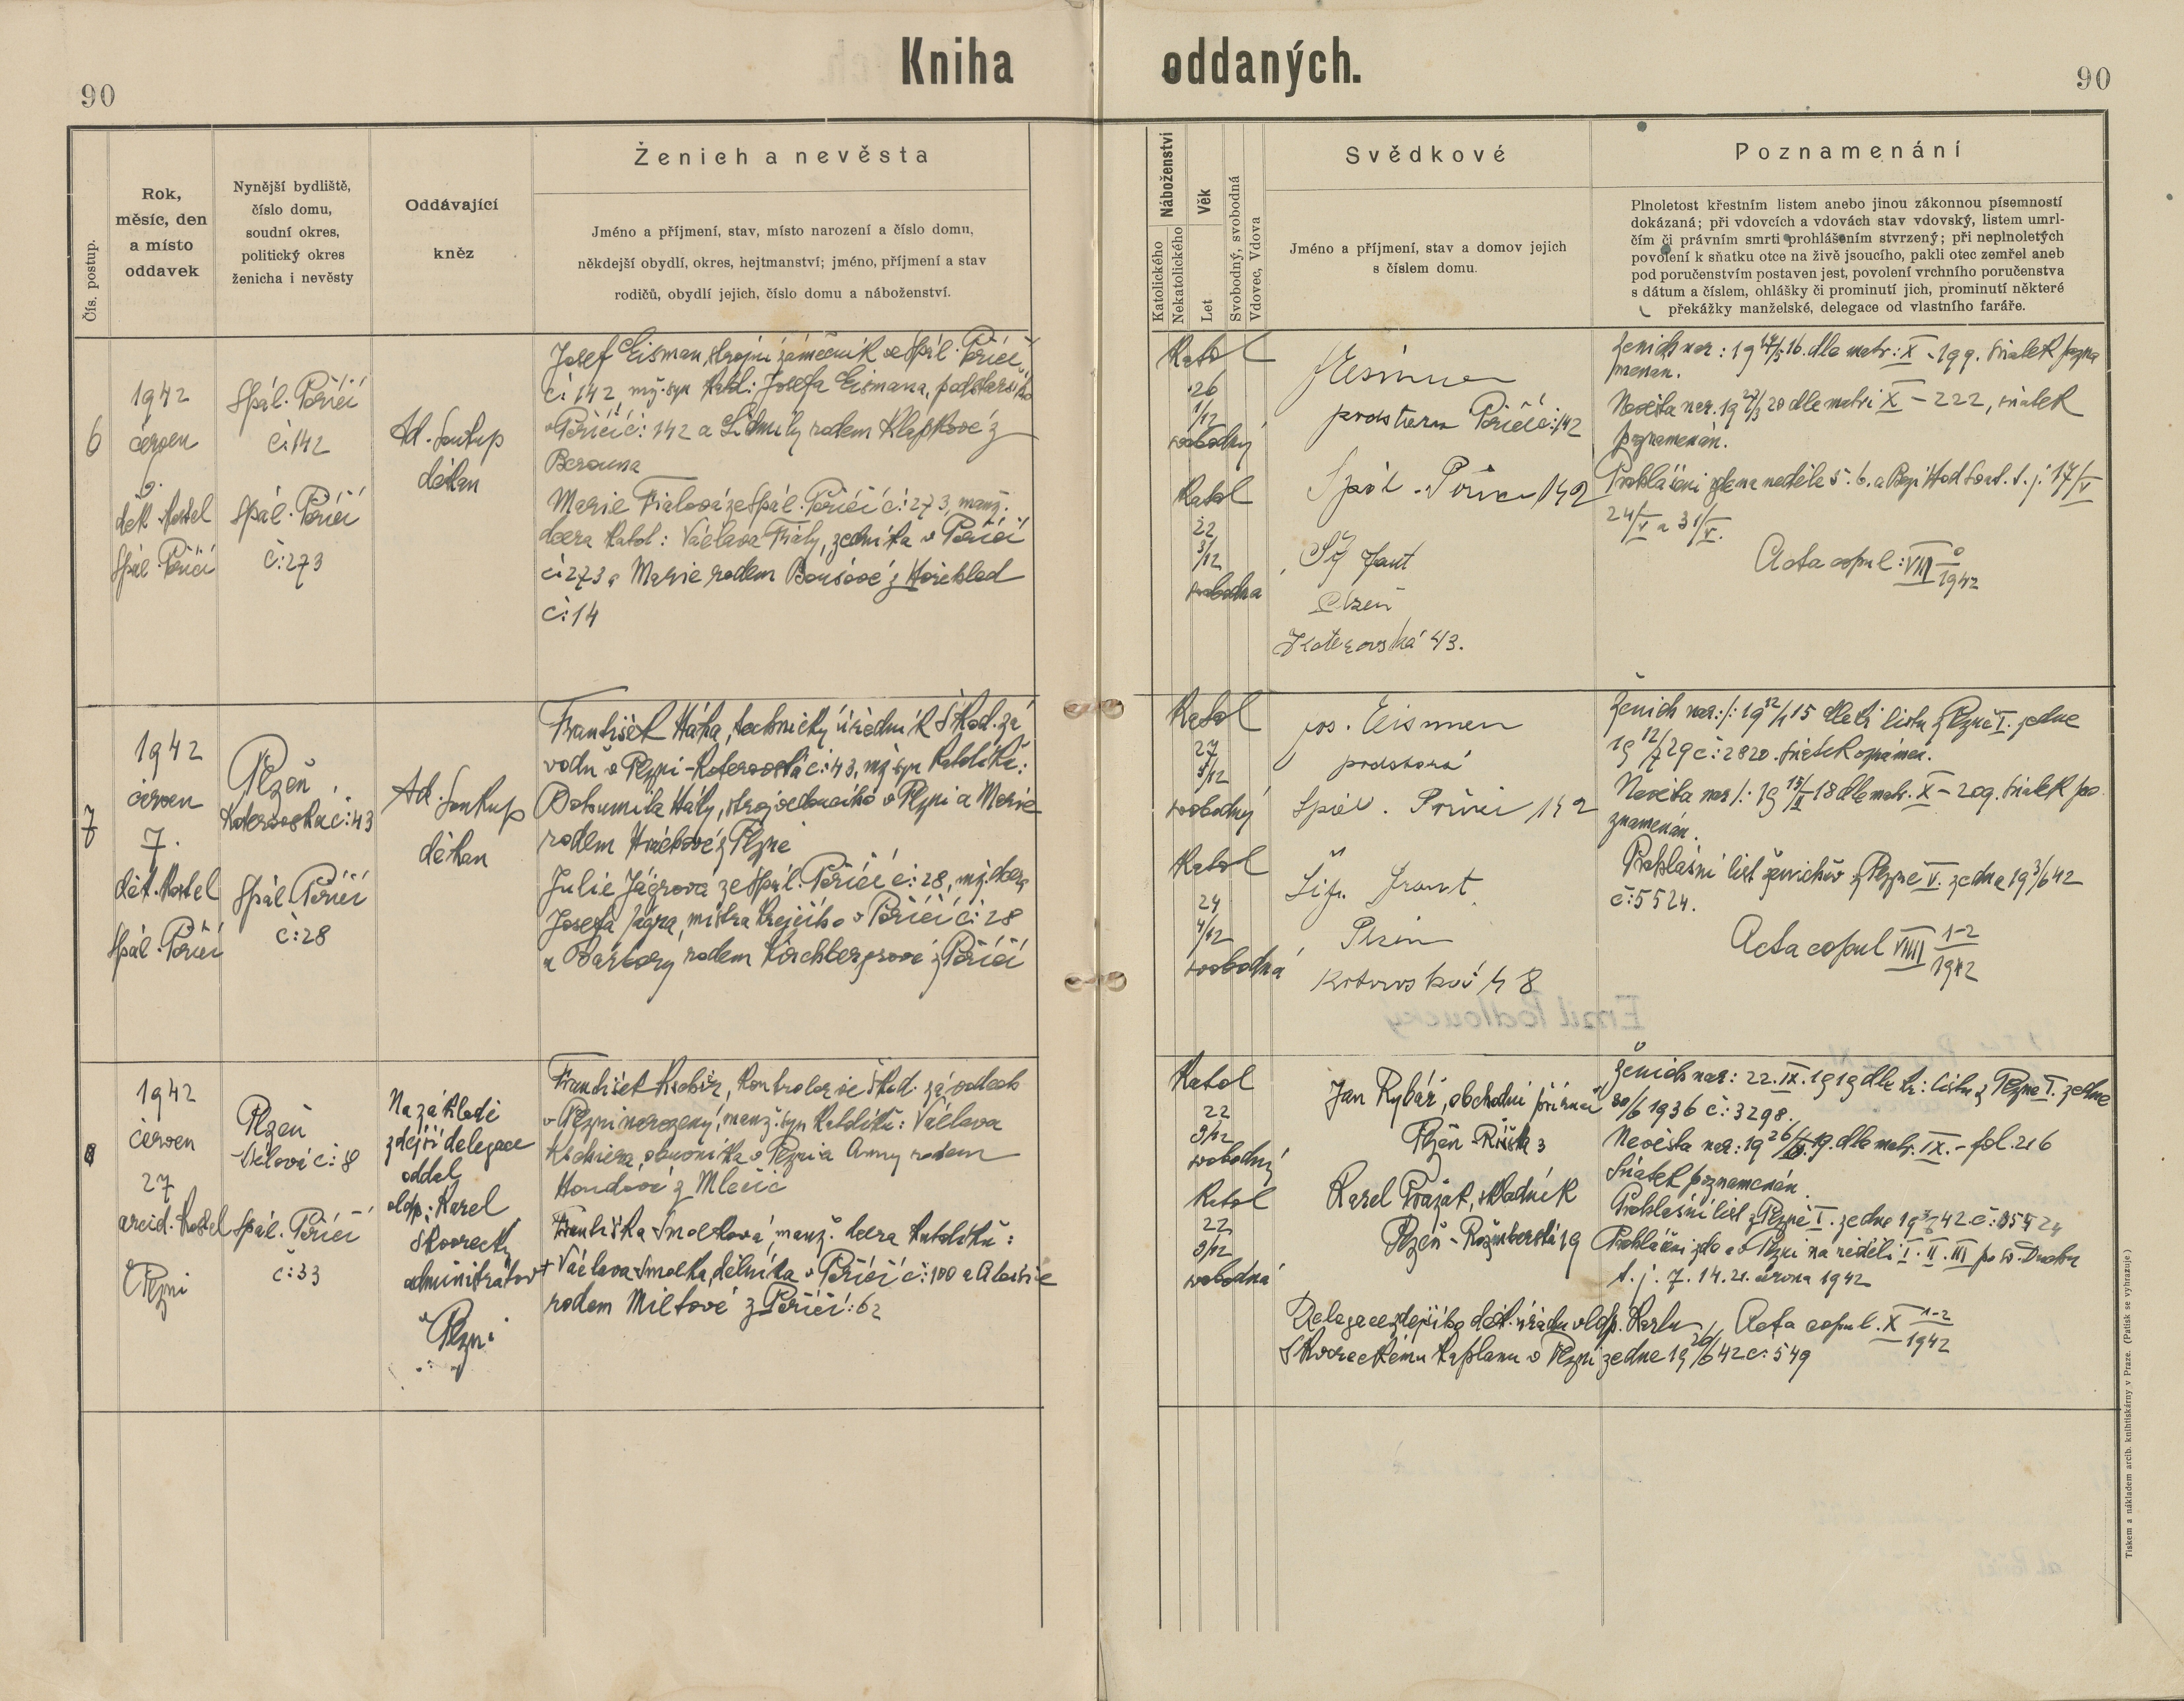 Kniha oddaných.
90
90
Čís. postup.
Rok,
měsíc, den
a místo
oddavek
Nynější bydliště,
číslo domu,
soudní okres,
politický okres
ženicha i nevěsty
Oddávající
kněz
Ženich a nevěsta
Jméno a příjmení, stav, místo narození a číslo domu,
někdejší obydlí, okres, hejtmanství; jméno, příjmení a stav
rodičů, obydlí jejich, číslo domu a náboženství.
Náboženství
Katolického
Nekatolického
Věk
Let
Svobodný, svobodná
Vdovec, Vdova
Svědkové
Jméno a příjmení, stav a domov jejich
s číslem domu.
Poznamenání
Plnoletost křestním listem anebo jinou zákonnou písemností
dokázaná; při vdovcích a vdovách stav vdovský, listem umrl-
čím či právním smrti prohlášením stvrzený; při neplnoletých
povolení k sňatku otce na živě jsoucího, pakli otec zemřel aneb
pod poručenstvím postaven jest, povolení vrchního poručenstva
s dátum a číslem, ohlášky či prominutí jich, prominutí některé
překážky manželské, delegace od vlastního faráře.
6
1942
červen
9.
děk. kostel
Spál. Poříčí
Spál. Poříčí
č: 142
Spál. Poříčí
č: 273
Ad. Soukup
děkan
Josef Eisman, strojní zámečník ve Spál. Poříčí
č: 142, mž. syn katol: Josefa Eismana, podstaršího
v Poříčí č: 142 a Lidmily rodem Klapkové z
Berouna
Marie Fialová ze Spál. Poříčí č: 273, manž.
dcera katol: Václava Fialy, zedníka v Poříčí
č: 273 a Marie rodem Boušové z Horehled
č: 14
Katol
26
1/12
svobodný
Katol
22
3/12
svobodná
JEisman
Poříčí č: 142
Spál. Poříčí 142
Plzeň
Koterovská 43.
Ženich nar: 19 14/5 16. dle matr: X - 199. Sňatek pozna
menán.
Nevěsta nar. 19 27/3 20 dle matri X - 222, sňatek
poznamenán.
t. j. 17/V
24/V a 31/V.
Acta copul: VIII 6 1942
7
1942
červen
7.
děk. kostel
Spál. Poříčí
Plzeň
Koterovská č: 43
Spál. Poříčí
č: 28
Ad. Soukup
děkan
František Háka, technický úředník Škod. zá
vodů v Plzni - Koterovská č: 43, mž. syn katolíků:
Bohumila Háky, strojvedoucího v Plzni a Marie
rodem Hráchové z Plzně
Julie Jágrová ze Spál. Poříčí č: 28, mž. dcera
Josefa Jágra, mistra krejčího v Poříčí č: 28
a Barbory rodem Kirchbergrové z Poříčí
Katol
27
5/12
svobodný
Katol
24
4/12
svobodná
Jos. Eisman
podstarší
Spál. Poříčí 142
Plzeň
Koterovská 48
Ženich nar: 19 12/1 15 dle kř. listu z Plzně I. ze dne
19 12/7 29 č: 2820. Sňatek oznámen.
Nevěsta nar: 19 15/II 18 dle matr. X - 209. Sňatek po
znamenán.
Prohlášní list ženichův z Plzně V. ze dne 19 3/6 42
č: 5524.
Acta copul VIIII 1-2 1942
8
1942
červen
27
arcid. kostel
v Plzni
Plzeň
č: 8
Spál. Poříčí
č: 33
Na základě
zdejší delegace
oddal
vldp: Karel
Škvorecký
administrátor
v Plzni
František Kochier, kontrolor ve Škod. závodech
v Plzni narozený, manž. syn katolíků: Václava
Kochiera, obuvníka v Plzni a Anny rodem
Houdové z Mlečic
Františka Smolková, manž. dcera katolíků:
+ Václava Smolka, dělníka v Poříčí č: 100 a Aloisie
rodem Miltové z Poříčí: 62
Katol
22
9/12
svobodný
Katol
22
9/12
svobodná
Jan Rybář, obchodní příručí
Plzeň - 3
Karel Pražák, skladník
Plzeň - Rožmberská 19
Ženich nar: 22. IX. 1919 dle kř: listu z Plzně I. ze dne
30/6 1936 č: 3298.
Nevěsta nar: 19 19. dle matr. IX. - fol. 216
Sňatek poznamenán.
Prohlášní list z Plzně I. ze dne 19 3/6 42 č: 5524
Prohlášení zde a v Plzni na neděli I. II. III po sv. Duchu
t. j. 7. 14. 21. června 1942
Delegace zdejšího děk. úřadu vldp. Karlu
Škvoreckému kaplanu v Plzni ze dne 19 26/6 42 č: 549
Acta copul. X 1-2 1942
Tiskem a nákladem arcib. knihtiskárny v Praze. (Patisk se vyhrazuje)